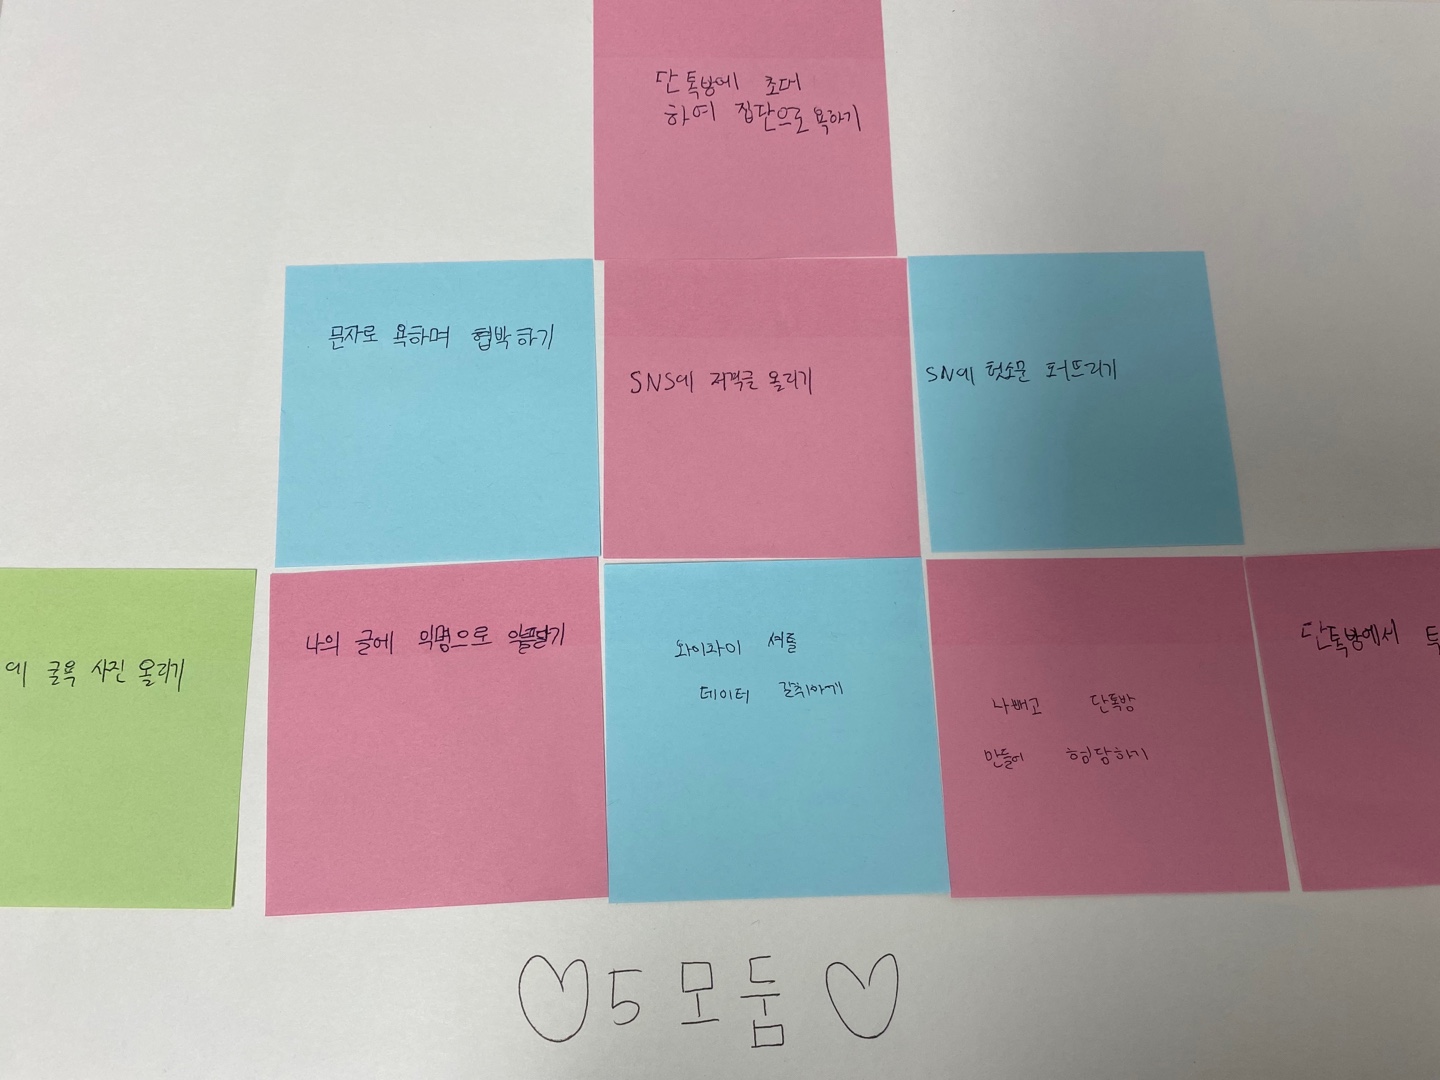 단톡방에 초대
하여 집단으로 욕하기
문자로 욕하며 협박하기
SNS에 저격글 올리기
SN에 헛소문 퍼뜨리기
에 굴욕 사진 올리기
나의 글에 익명으로 악플달기
와이파이 셔틀
데이터 갈취하기
나빼고 단톡방
만들어 험담하기
단톡방에서 투
♡5모둠♡